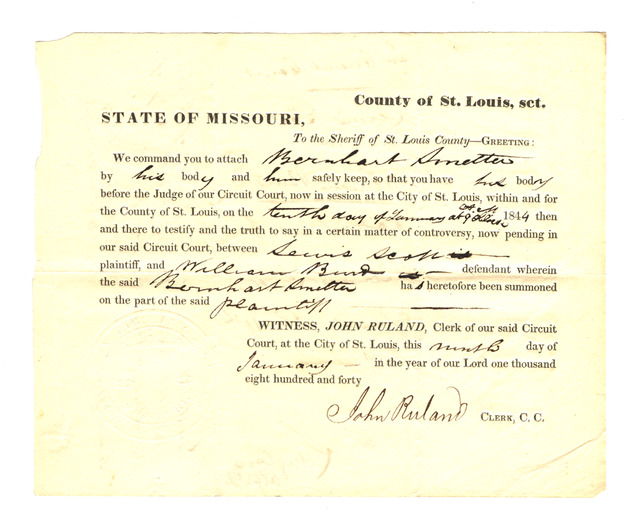 County of St. Louis, sct.
STATE OF MISSOURI,
To the Sheriff of St. Louis County—GREETING:
We command you to attach Bernhart Smetter
by his body and him safely keep, so that you have his body
before the Judge of our Circuit Court, now in session at the City of St. Louis, within and for
the County of St. Louis, on the tenth day of January at 9 oClock A M 1844 then
and there to testify and the truth to say in a certain matter of controversy, now pending in
our said Circuit Court, between Lewis Scott is
plaintiff, and William Burd is defendant wherein
the said Bernhart Smetter has heretofore been summoned
on the part of the said plaintiff
WITNESS, JOHN RULAND, Clerk of our said Circuit
Court, at the City of St. Louis, this ninth day of
January in the year of our Lord one thousand
eight hundred and forty
John Ruland CLERK, C. C.